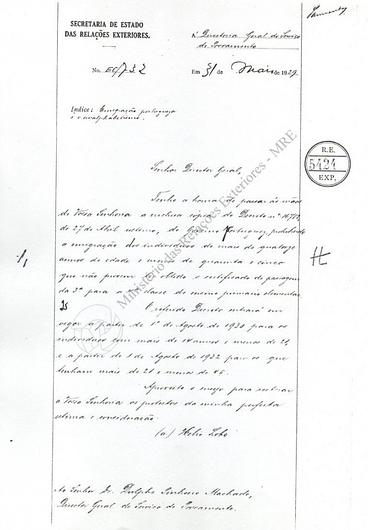 SECRETARIA DE ESTADO
DAS RELAÇÕES EXTERIORES.
Á Directoria Geral do Serviço
de Povoamento
No. EC/732
Em 31 de Maio de 1929
Indice: Emigração portugueza
e o analphabetismo.
Senhor Director Geral,
Tenho a honra de passar ás mãos
de Vossa Senhoria a inclusa cópia do Decreto nº
de 27 de Abril ultimo, do Governo Portuguez, prohibindo
a emigração dos individuos de mais de quatorze
annos de idade e menos de quarenta e cinco
que não provem ter obtido o certificado de passagem
da 3ª para a 4ª classe do ensino primario elementar.
O referido Decreto entrará em
vigor a partir de 1º de Agosto de 1930 para os
individuos com mais de 14 annos e menos de 21
e a partir de 1 de Agosto de 1932 para os que
tenham mais de 21 e menos de 45.
Aproveito o ensejo para reiterar
a Vossa Senhoria os protestos da minha perfeita
estima e consideração.
(a) Helio Lobo
Ao Senhor Dr. Dulphe Pinheiro Machado,
Director Geral do Serviço de Povoamento.
R.E.
5424
EXP.
Ministério das Relações Exteriores - MRE